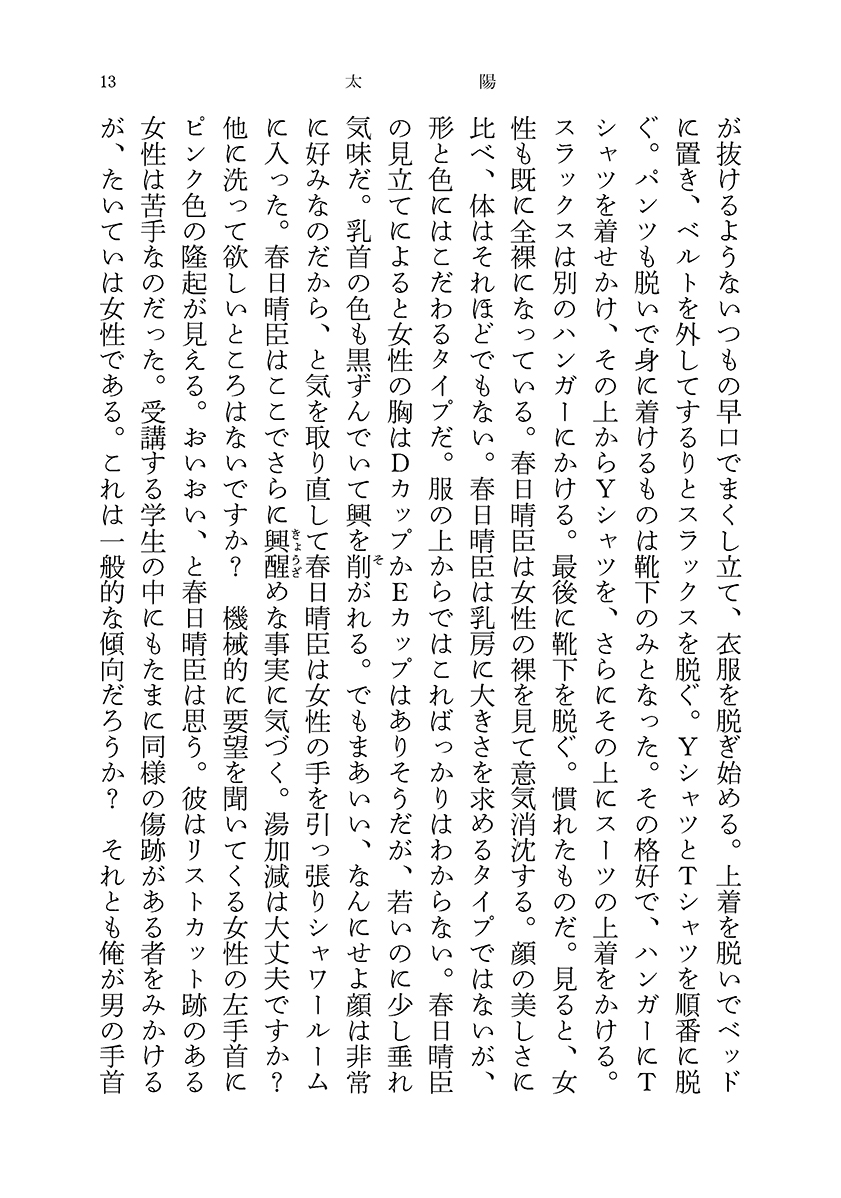 13
太陽
が抜けるようないつもの早口でまくし立て、衣服を脱ぎ始める。上着を脱いでベッド
に置き、ベルトを外してするりとスラックスを脱ぐ。YシャツとTシャツを順番に脱
ぐ。パンツも脱いで身に着けるものは靴下のみとなった。その格好で、ハンガーにT
シャツを着せかけ、その上からYシャツを、さらにその上にスーツの上着をかける。
スラックスは別のハンガーにかける。最後に靴下を脱ぐ。慣れたものだ。見ると、女
性も既に全裸になっている。春日晴臣は女性の裸を見て意気消沈する。顔の美しさに
比べ、体はそれほどでもない。春日晴臣は乳房に大きさを求めるタイプではないが、
形と色にはこだわるタイプだ。服の上からではこればっかりはわからない。春日晴臣
の見立てによると女性の胸はDカップかEカップはありそうだが、若いのに少し垂れ
気味だ。乳首の色も黒ずんでいて興を削がれる。でもまあいい、なんにせよ顔は非常
に好みなのだから、と気を取り直して春日晴臣は女性の手を引っ張りシャワールーム
に入った。春日晴臣はここでさらに興醒めな事実に気づく。湯加減は大丈夫ですか?
他に洗って欲しいところはないですか? 機械的に要望を聞いてくる女性の左手首に
ピンク色の隆起が見える。おいおい、と春日晴臣は思う。彼はリストカット跡のある
女性は苦手なのだった。受講する学生の中にもたまに同様の傷跡がある者をみかける
が、たいていは女性である。これは一般的な傾向だろうか? それとも俺が男の手首